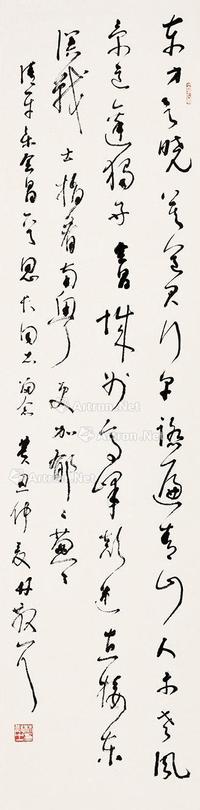 东方欲晓莫道君行早踏遍青山人未老风
景这边独好会昌城外高峰颠连直接东
溟战士指看南粤更加郁々葱々
清平乐会昌 同志留念 癸丑仲夏林散之
Artron.Net